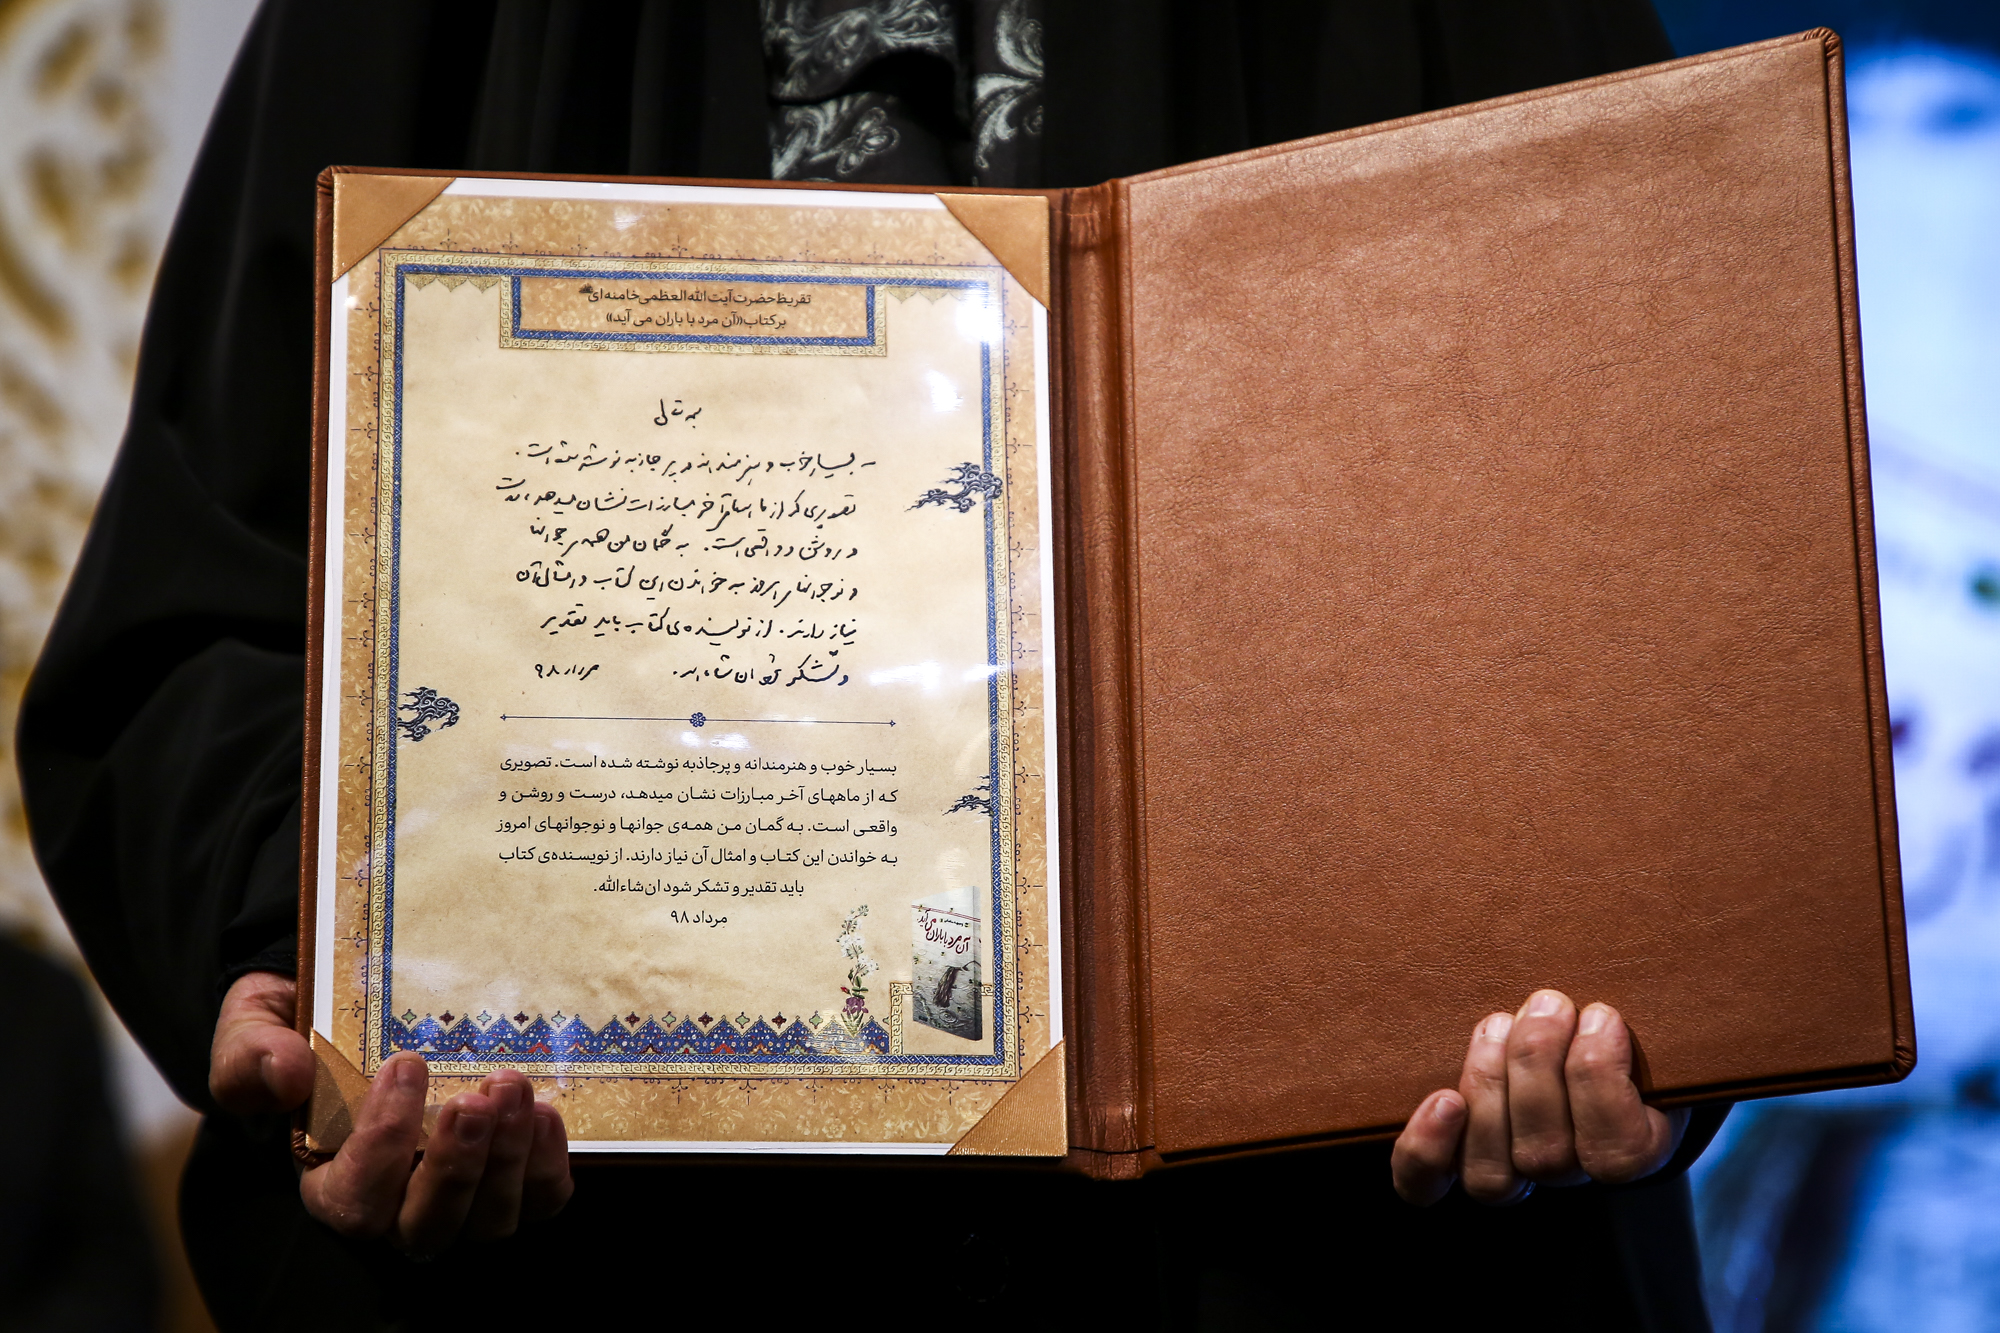 تقریظ حضرت آیت الله العظمی خامنه‌ای
بر کتاب «آن مرد با باران می آید»
بسمه تعالی
- بسیار خوب و هنرمندانه و پرجاذبه نوشته شده است.
تصویری که از ماههای آخر مبارزات نشان میدهد، درست
و روشن و واقعی است. به گمان من همه‌ی جوانها
و نوجوانهای امروز به خواندن این کتاب و امثال آن
نیاز دارند. از نویسنده‌ی کتاب باید تقدیر
و تشکر شود ان شاءالله. مرداد ۹۸
بسیار خوب و هنرمندانه و پرجاذبه نوشته شده است. تصویری
که از ماههای آخر مبارزات نشان میدهد، درست و روشن و
واقعی است. به گمان من همه‌ی جوانها و نوجوانهای امروز
به خواندن این کتاب و امثال آن نیاز دارند. از نویسنده‌ی کتاب
باید تقدیر و تشکر شود ان‌شاءالله.
مرداد ۹۸
آن مرد با باران می آید